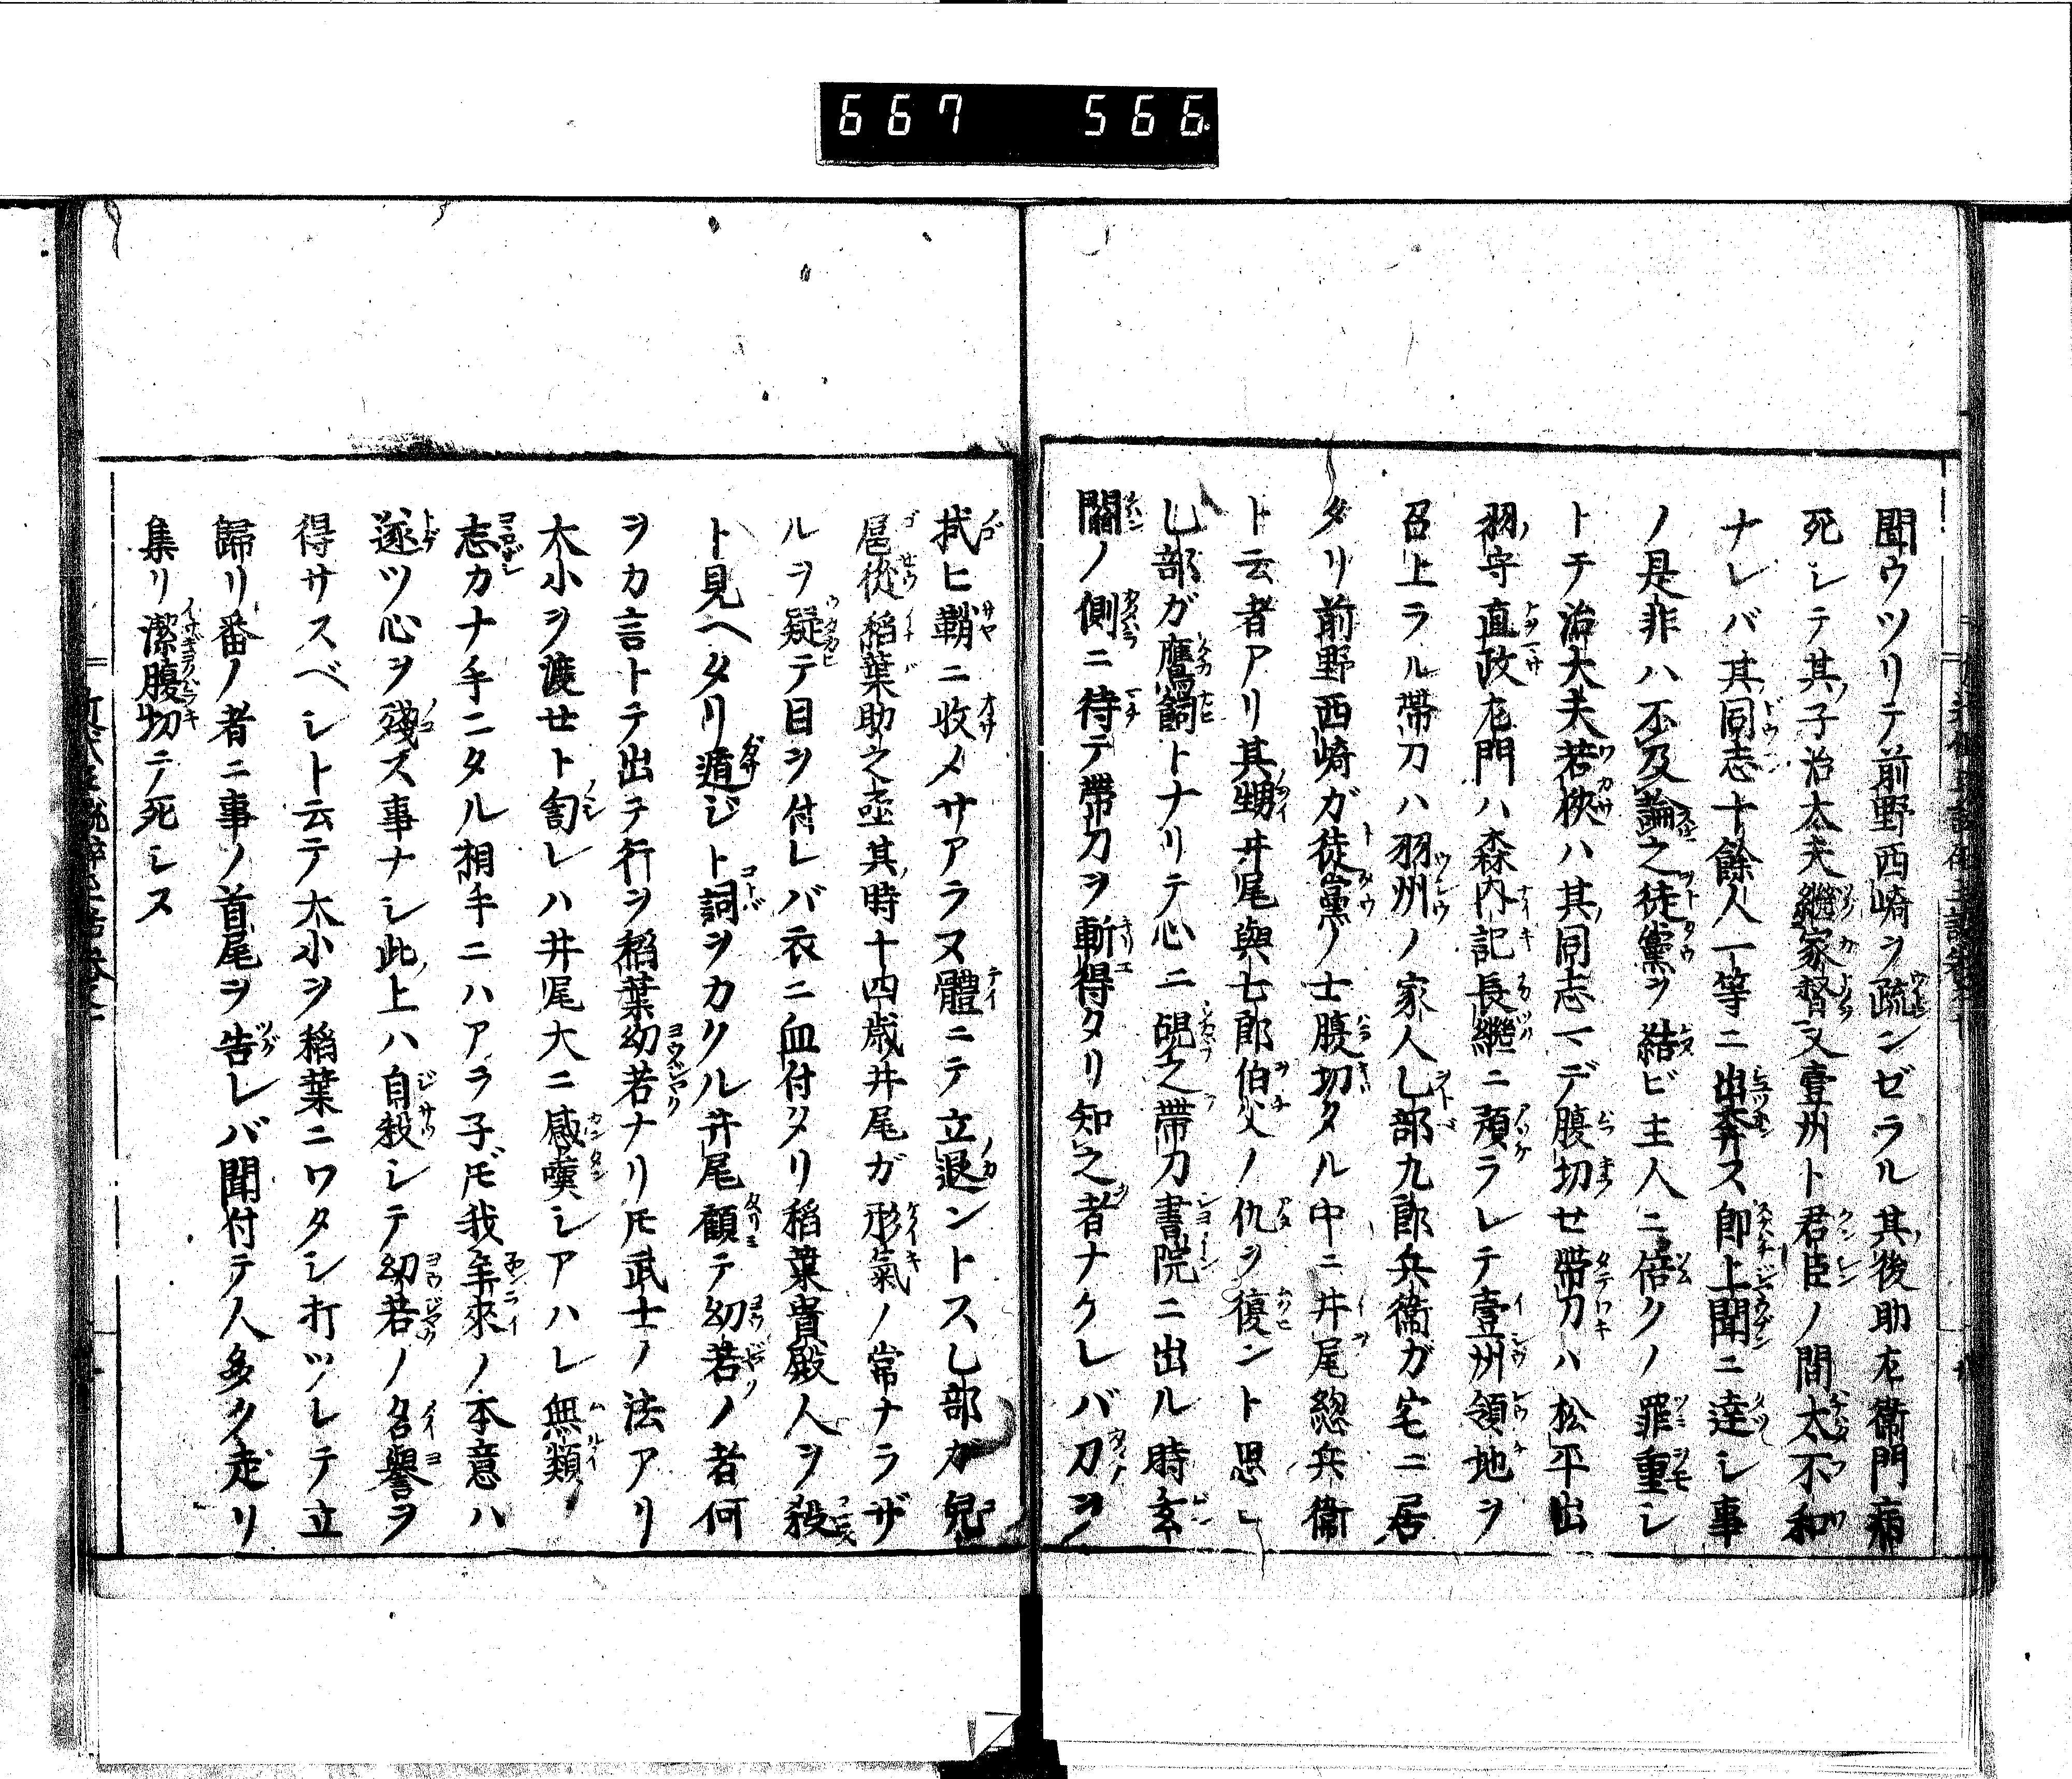 667 566
聞ウツリテ前野西崎ヲ疏ンゼラル其後助左衞門病
死シテ其ノ子治太夫繼家督又壹州ト君臣ノ間太不和
ナレバ其同志十餘人一等ニ出奔ス即上聞ニ達シ事
ノ是非ハ不及論之徒黨ヲ結ビ主人ニ倍クノ罪重シ
トテ治大夫若狹ハ其ノ同志マデ腹切せ帶刀ハ松平出
羽ノ守直政左門ハ森内記長繼ニ預ラレテ壹州領地ヲ
召上ラル帶刀ハ羽州ノ家人乚部九郎兵衞ガ宅ニ居
タリ前野西崎ガ徒黨ノ士腹切タル中ニ井尾總兵衞
ト云者アリ其甥井尾與七郎伯父ノ仇ヲ復ント思ヒ
乚部ガ鷹飼トナリテ心ニ硯之帶刀書院ニ出ル時玄
關ノ側ニ待テ帶刀ヲ斬得タリ知之者ナクレバ刀ヲ
拭ヒ鞘ニ收メサアラヌ體ニテ立退ントス乚部ガ兒
扈從稻葉助之丞其時十四歳井尾ガ形氣ノ常ナラザ
ルヲ疑テ目ヲ付レバ衣ニ血付タリ稻葉貴殿人ヲ殺
ト見ヘタリ遁ジト詞ヲカクル井尾顧テ幼若ノ者何
ヲカ言トテ出テ行ヲ稻葉幼若ナリ𪜈武士ノ法アリ
大小ヲ渡せト訇レハ井尾大ニ感嘆シアハレ無類ノ
志カナ手ニタル相手ニハアラ子𪜈我年來ノ本意ハ
遂ツ心ヲ殘ス事ナシ此上ハ自殺シテ幼若ノ名譽ラ
得サスベシト云テ大小ヲ稻葉ニワタシ打ツレテ立
歸リ番ノ者ニ事ノ首尾ヲ告レバ聞付テ人多ク走リ
集リ潔腹切ニテ死シス